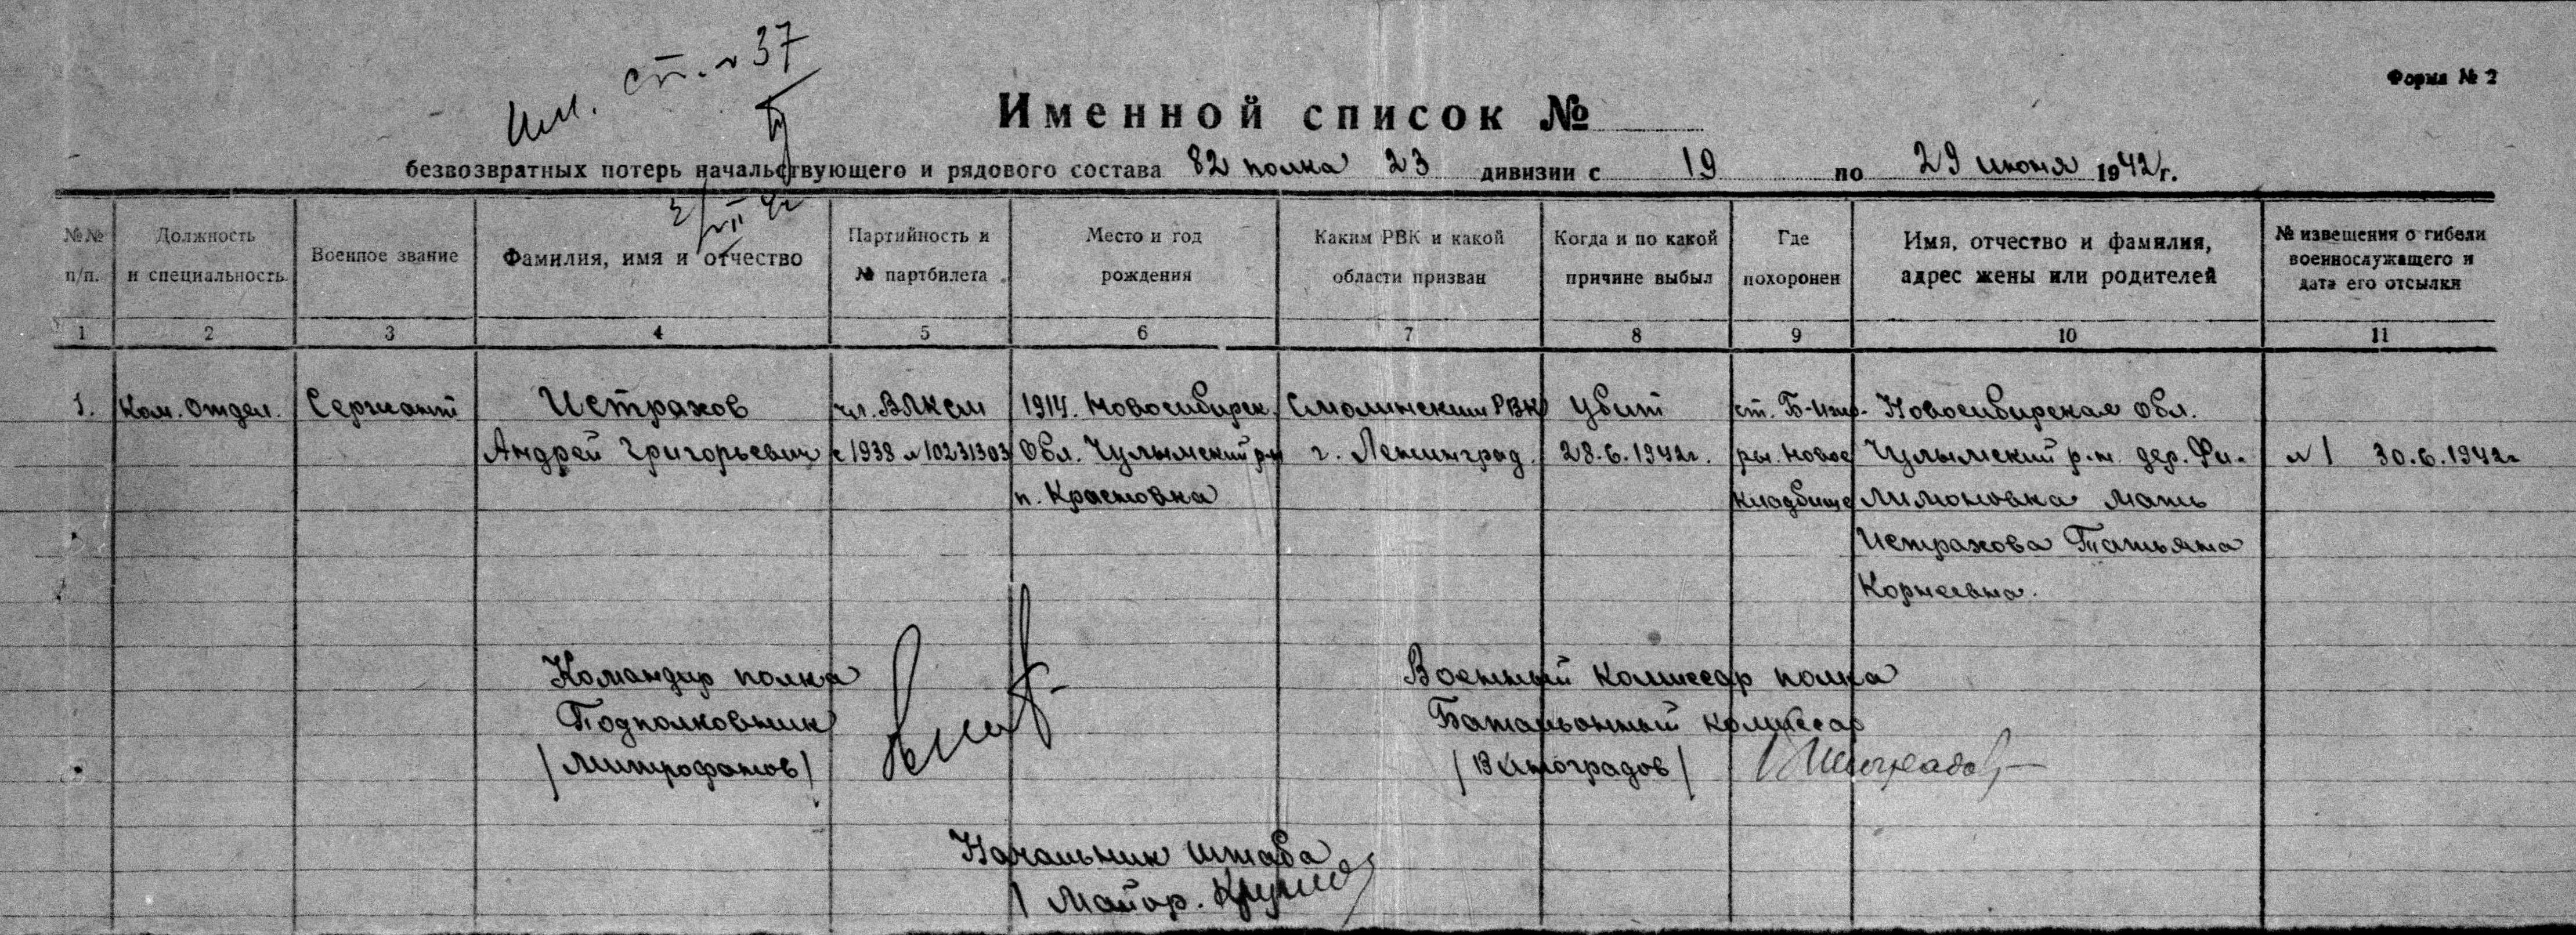 им. ст. № 37
Форма № 2
Именной список №
безвозвратных потерь начальствующего и рядового состава 82 полка 23 дивизии с 19 по 29 июня 1942 г.
№№ п/п.
Должность и специальность
Военное звание
Фамилия, имя и отчество
Партийность и № партбилета
Место и год рождения
Каким РВК и какой области призван
Когда и по какой причине выбыл
Где похоронен
Имя, отчество и фамилия, адрес жены или родителей
№ извещения о гибели военнослужащего и дата его отсылки
1 2 3 4 5 6 7 8 9 10 11
1. Ком. отдел. Сержант Истрахов чл. ВЛКСМ 1914. Новосибирск. Смолинским РВК Убит ст. Б-Ижо- Новосибирская обл.
Андрей Григорьевич с 1938 № 10231303 обл. Чулымский р-н г. Ленинград. 28.6.1942г. ры. Новое Чулымский р-н. дер. Фи- № 1 30.6.1942г
п. Красновка кладбище лимоновка мать
Истрахова Татьяна
Корнеевна.
Командир полка Военный комиссар полка
Подполковник Батальонный комиссар
/Митрофанов/ /Виноградов/ Виноградов
Начальник штаба
/ Майор.